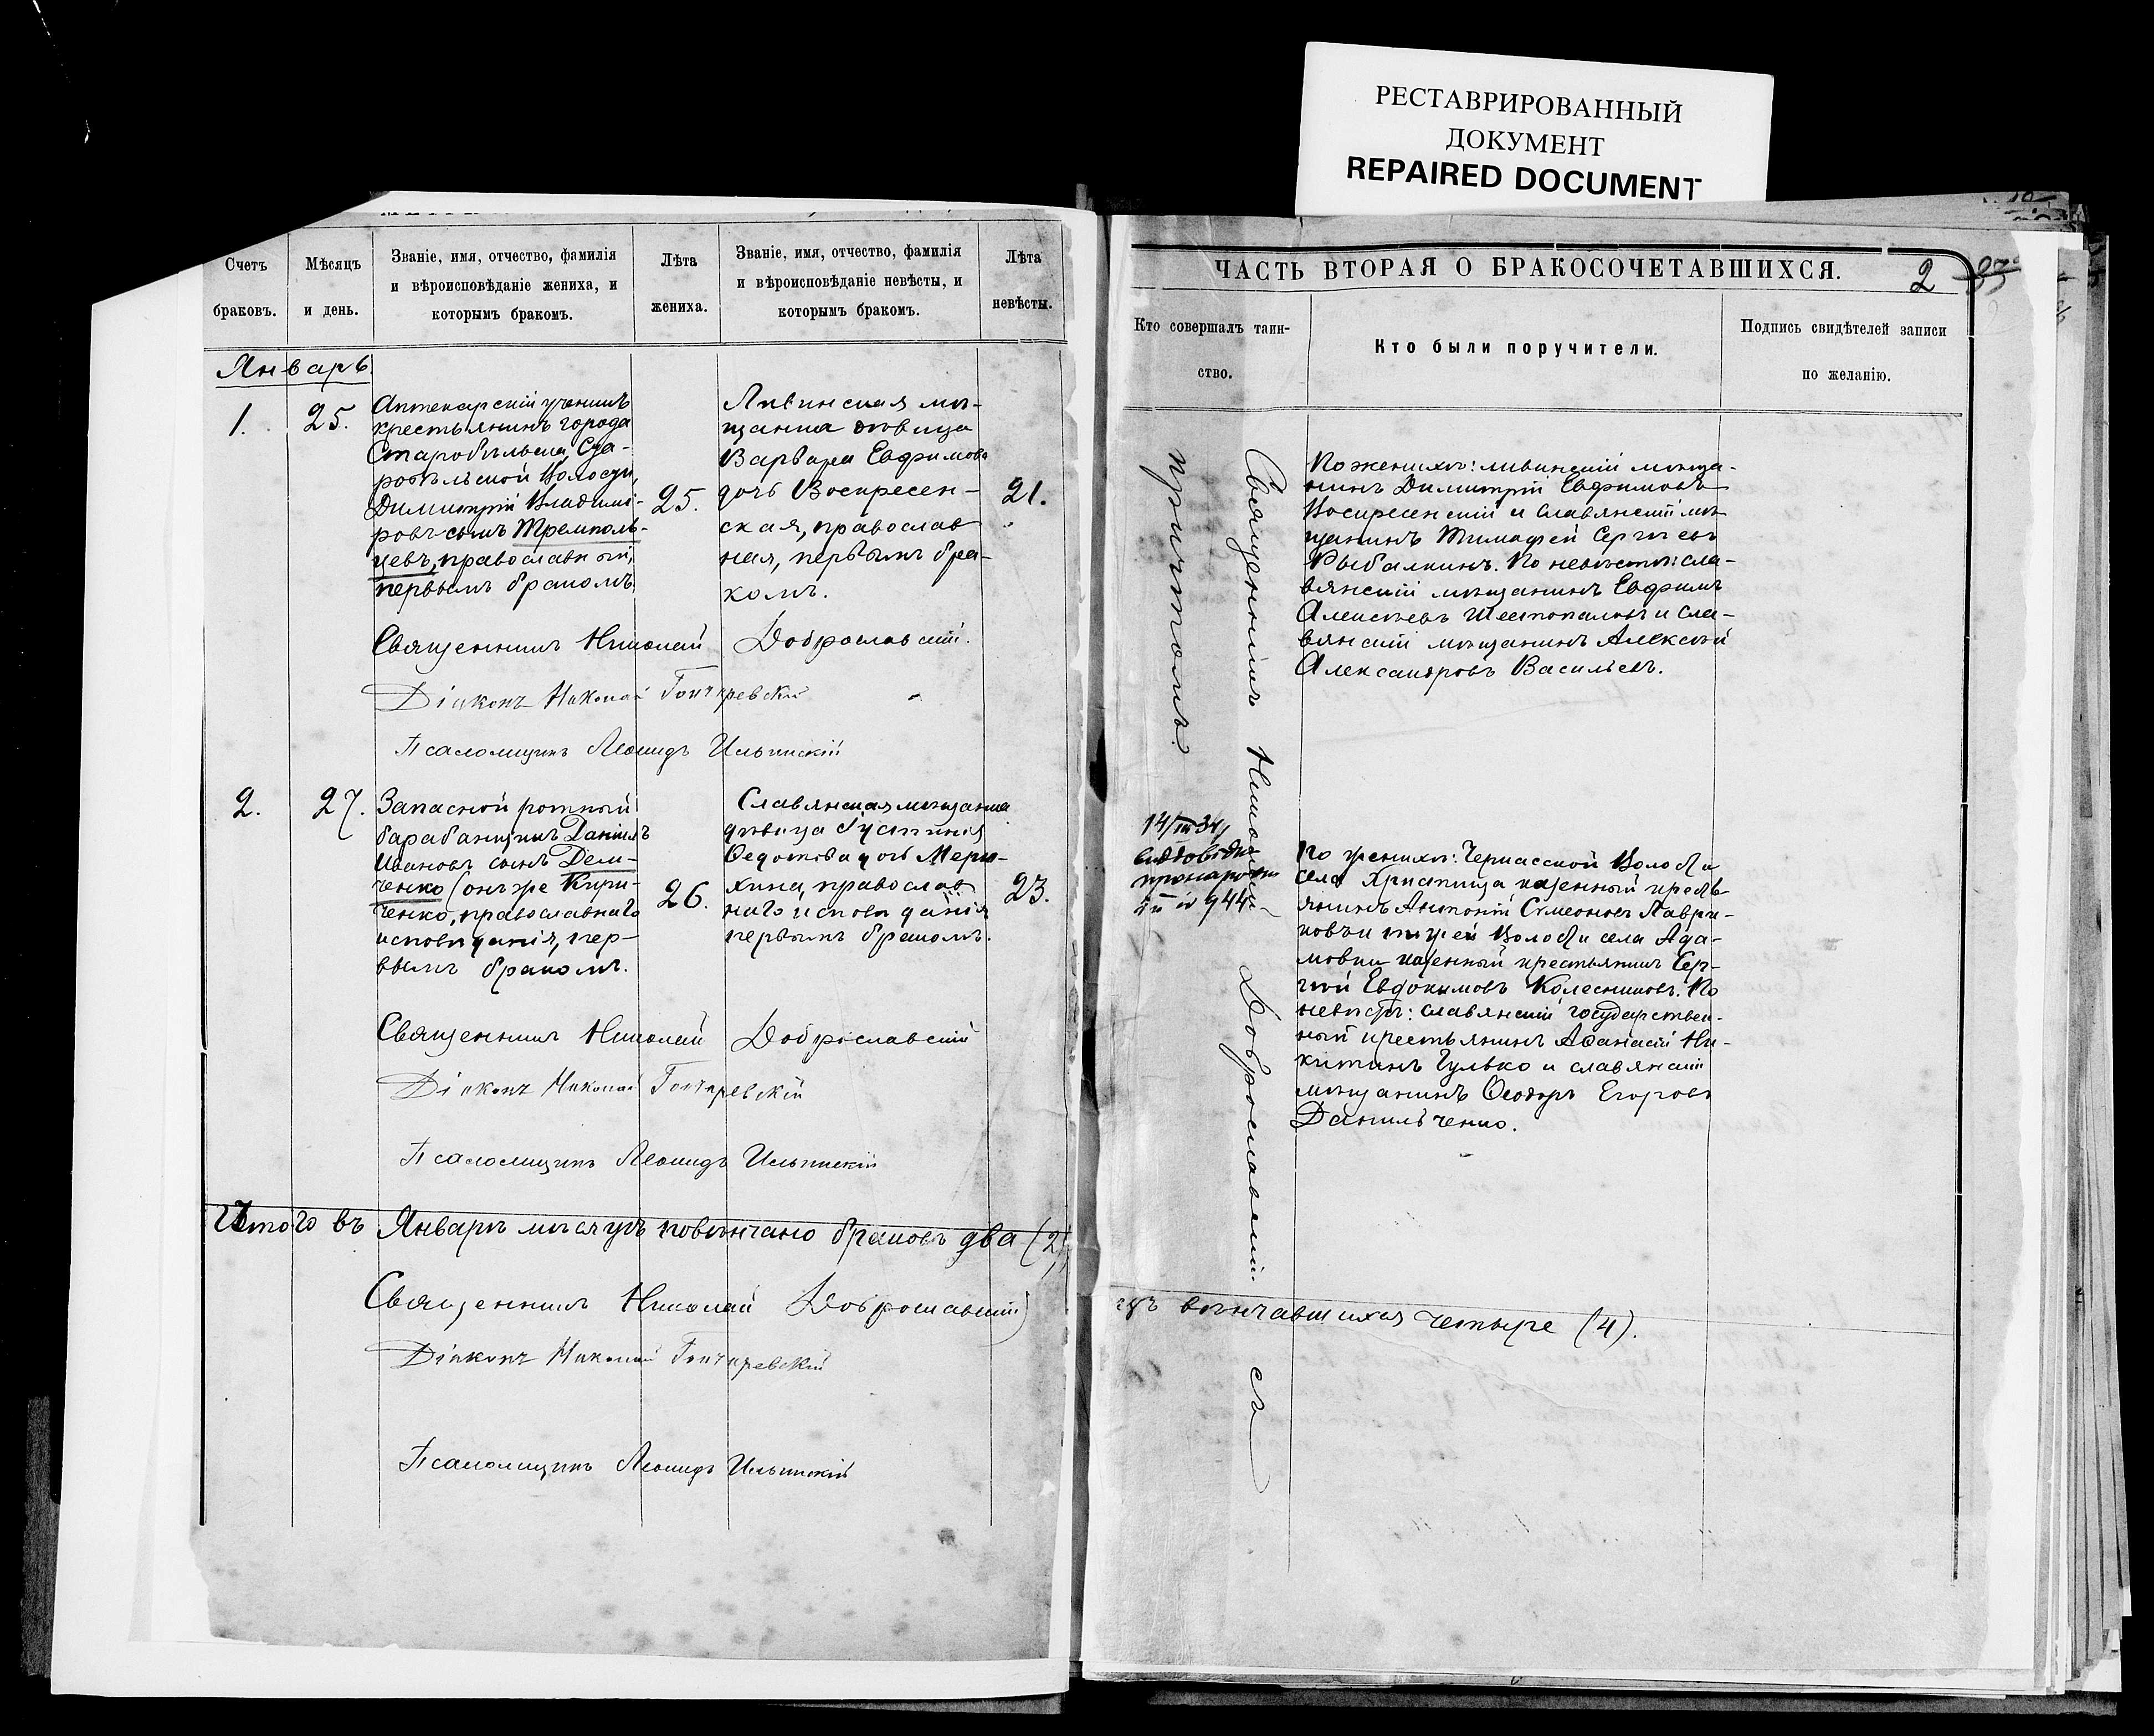 РЕСТАВРИРОВАННЫЙ
ДОКУМЕНТ
REPAIRED DOCUMENT
Счетъ
браковъ.
Мѣсяцъ
и день.
Званіе, имя, отчество, фамилія
и вѣроисповѣданіе жениха, и
которымъ бракомъ.
Лѣта
жениха.
Званіе, имя, отчество, фамилія
и вѣроисповѣданіе невѣсты, и
которымъ бракомъ.
Лѣта
невѣсты.
Январь
1.
25.
Аптекарскій ученикъ
крестьянинъ города
Старобѣльска, Ста-
робѣльской волости,
Димитрій Владимі-
ровъ сынъ Тремполь-
цевъ, православный,
первымъ бракомъ.
25.
Ливинская мѣ-
щанка дѣвица
Варвара Евфимова
дочь Воскресен-
ская, православ
ная, первымъ бра-
комъ.
21.
Священникъ Николай Доброславскій.
Діаконъ Николай Гончаревскій
Псаломщикъ Леонидъ Ильинскій
2.
27.
Запасной ротный
барабанщикъ Даніилъ
Ивановъ сынъ Дем-
ченко (онъ же Кири-
ченко, православнаго
исповѣданія, пер-
вымъ бракомъ.
26.
Славянская мѣщанка
дѣвица Іустинія
Ѳедотова дочь Мери-
хина, православ
наго исповѣданія
первымъ бракомъ.
23.
Священникъ Николай Доброславскій
Діаконъ Николай Гончаревскій
Псаломщикъ Леонидъ Ильинскій
Итого въ Январѣ мѣсяцѣ повѣнчано браковъ два (2),
Священникъ Николай Доброславскій
Діаконъ Николай Гончаревскій
Псаломщикъ Леонидъ Ильинскій
ЧАСТЬ ВТОРАЯ О БРАКОСОЧЕТАВШИХСЯ.
2
Кто совершалъ таин-
ство.
Кто были поручители.
Подпись свидѣтелей записи
по желанію.
Священникъ Николай Доброславскій съ
причтомъ.
По женихѣ: ливинскій мѣща-
нинъ Димитрій Евфимовъ
Воскресенскій и славянскій мѣ
щанинъ Тимофей Сергѣевъ
Рыбалкинъ. По невѣстѣ: сла-
вянскій мѣщанинъ Евфимъ
Алексѣевъ Шестопаловъ и сла-
вянскій мѣщанинъ Алексѣй
Александровъ Васильевъ.
14/III 34,
944
По женихѣ: Черкасской волости
села Христища казенный кресть
янинъ Антоній Симеоновъ Лаври-
ковъ и той же волости села Ада-
мовки казенный крестьянинъ Сер-
гѣй Евдокимовъ Колесниковъ. По
невѣстѣ: славянскій государствен-
ный крестьянинъ Аѳанасій Ни-
китинъ Гулько и славянскій
мѣщанинъ Ѳеодоръ Егоровъ
Данильченко.
вѣнчавшихся четыре (4).